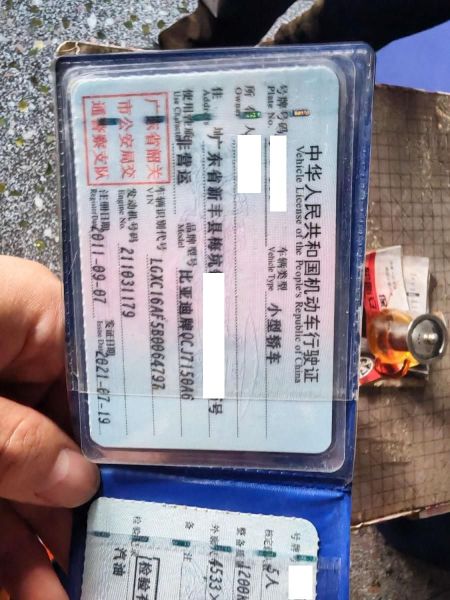 中华人民共和国机动车行驶证
Vehicle License of the People's Republic of China
号牌号码
Plate No.
车辆类型 小型轿车
Vehicle Type
所有人
Owner
住址 广东省新丰县梅坑
号
Address
使用性质 非营运
Use Character
品牌型号 比亚迪牌QCJ7150A6
Model
广东省韶关
市公安局交
通警察支队
车辆识别代号 LGXC16AF5B0064797
VIN
发动机号码 211031179
Engine No.
注册日期 2011-09-07
Register Date
发证日期 2021-07-19
Issue Date
号牌
核定 5人
整备质 1200k
外廓 4533×
备注
检验
检验有
汽油